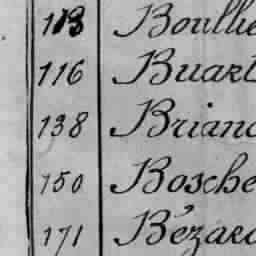 113 Boullie
116 Buart
138 Briand
150 Bosche
171 Bézard